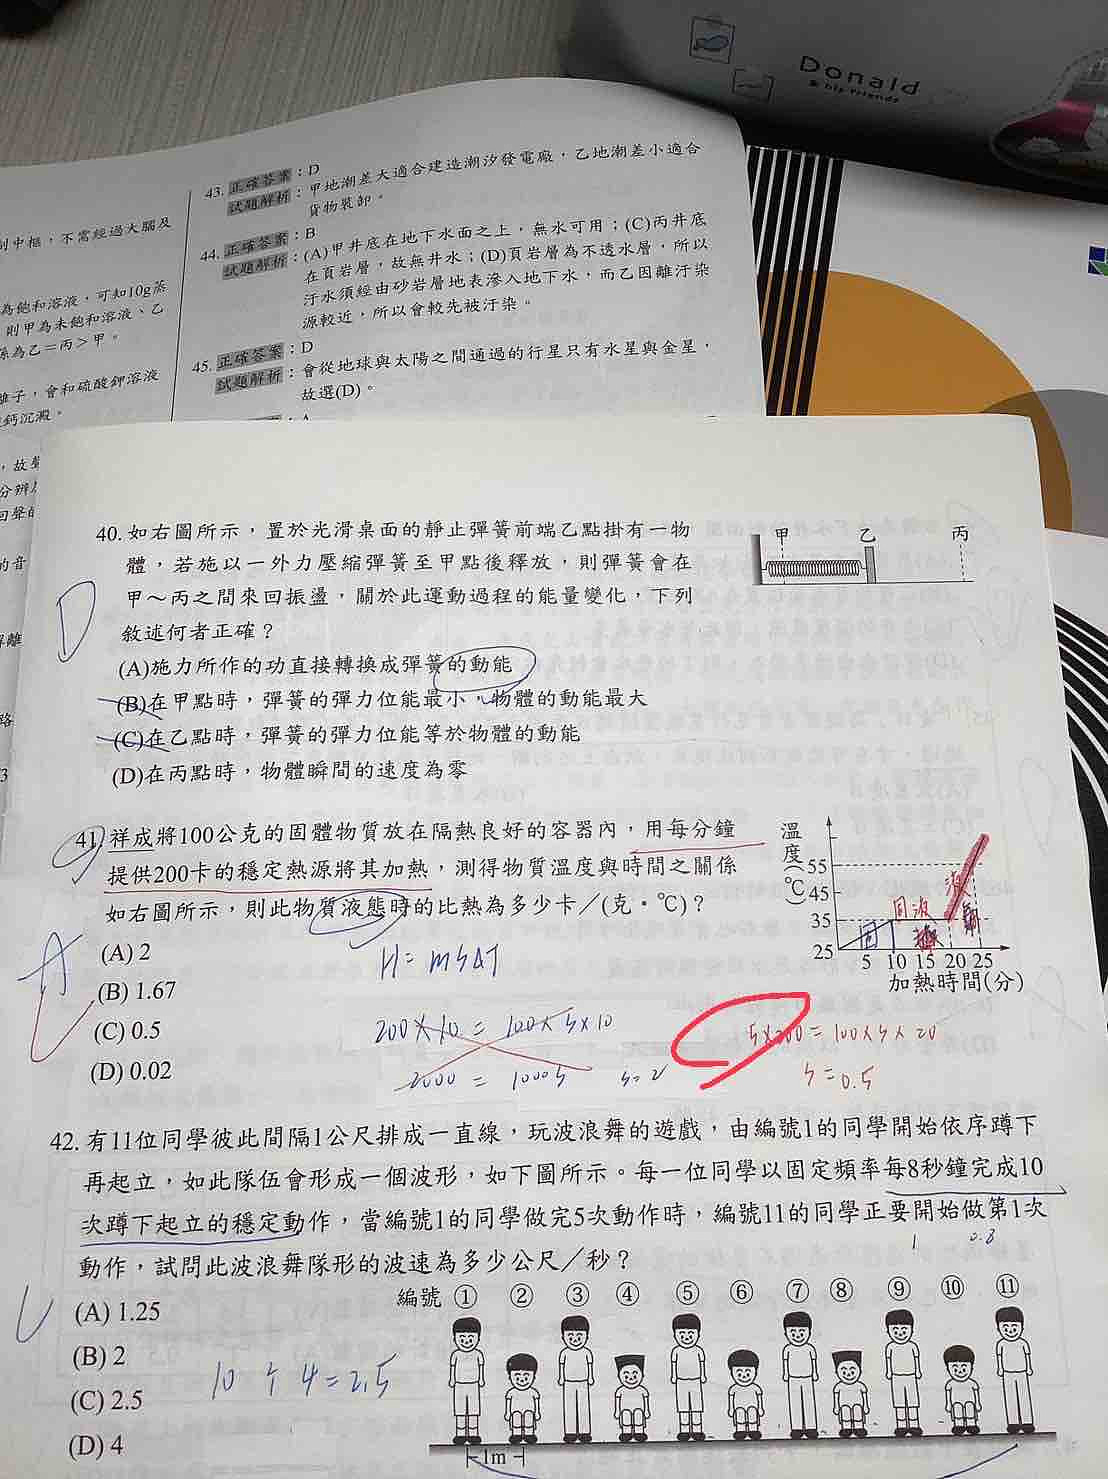 Donald
& his friends
43. 正確答案：D
試題解析：甲地潮差大適合建造潮汐發電廠，乙地潮差小適合
貨物裝卸。
44. 正確答案：B
試題解析：(A)甲井底在地下水面之上，無水可用；(C)丙井底
在頁岩層，故無井水；(D)頁岩層為不透水層，所以
汙水須經由砂岩層地表滲入地下水，而乙因離汙染
源較近，所以會較先被汙染。
45. 正確答案：D
試題解析：會從地球與太陽之間通過的行星只有水星與金星，
故選(D)。
：A
制中樞，不需經過大腦及
為飽和溶液，可知10g蒸
則甲為未飽和溶液、乙
係為乙＝丙＞甲。
離子，會和硫酸鉀溶液
鈣沉澱。
，故聲
分辨
回聲
的音
解離
路
3
40. 如右圖所示，置於光滑桌面的靜止彈簧前端乙點掛有一物
體，若施以一外力壓縮彈簧至甲點後釋放，則彈簧會在
甲～丙之間來回振盪，關於此運動過程的能量變化，下列
敘述何者正確？
甲 乙 丙
D
(A)施力所作的功直接轉換成彈簧的動能
(B)在甲點時，彈簧的彈力位能最小、物體的動能最大
(C)在乙點時，彈簧的彈力位能等於物體的動能
(D)在丙點時，物體瞬間的速度為零
41. 祥成將100公克的固體物質放在隔熱良好的容器內，用每分鐘
提供200卡的穩定熱源將其加熱，測得物質溫度與時間之關係
如右圖所示，則此物質液態時的比熱為多少卡／(克・℃)？
溫度(℃)
55
45
35
25
5 10 15 20 25
加熱時間(分)
固
固液
液
A
(A) 2
(B) 1.67
(C) 0.5
(D) 0.02
H = MSΔT
200×10 = 100×S×10
2000 = 1000S S=2
5×200 = 100×S×20
S=0.5
42. 有11位同學彼此間隔1公尺排成一直線，玩波浪舞的遊戲，由編號1的同學開始依序蹲下
再起立，如此隊伍會形成一個波形，如下圖所示。每一位同學以固定頻率每8秒鐘完成10
次蹲下起立的穩定動作，當編號1的同學做完5次動作時，編號11的同學正要開始做第1次
動作，試問此波浪舞隊形的波速為多少公尺／秒？
1 0.8
編號 ① ② ③ ④ ⑤ ⑥ ⑦ ⑧ ⑨ ⑩ ⑪
(A) 1.25
(B) 2
(C) 2.5
(D) 4
10 ÷ 4 = 2.5
1m